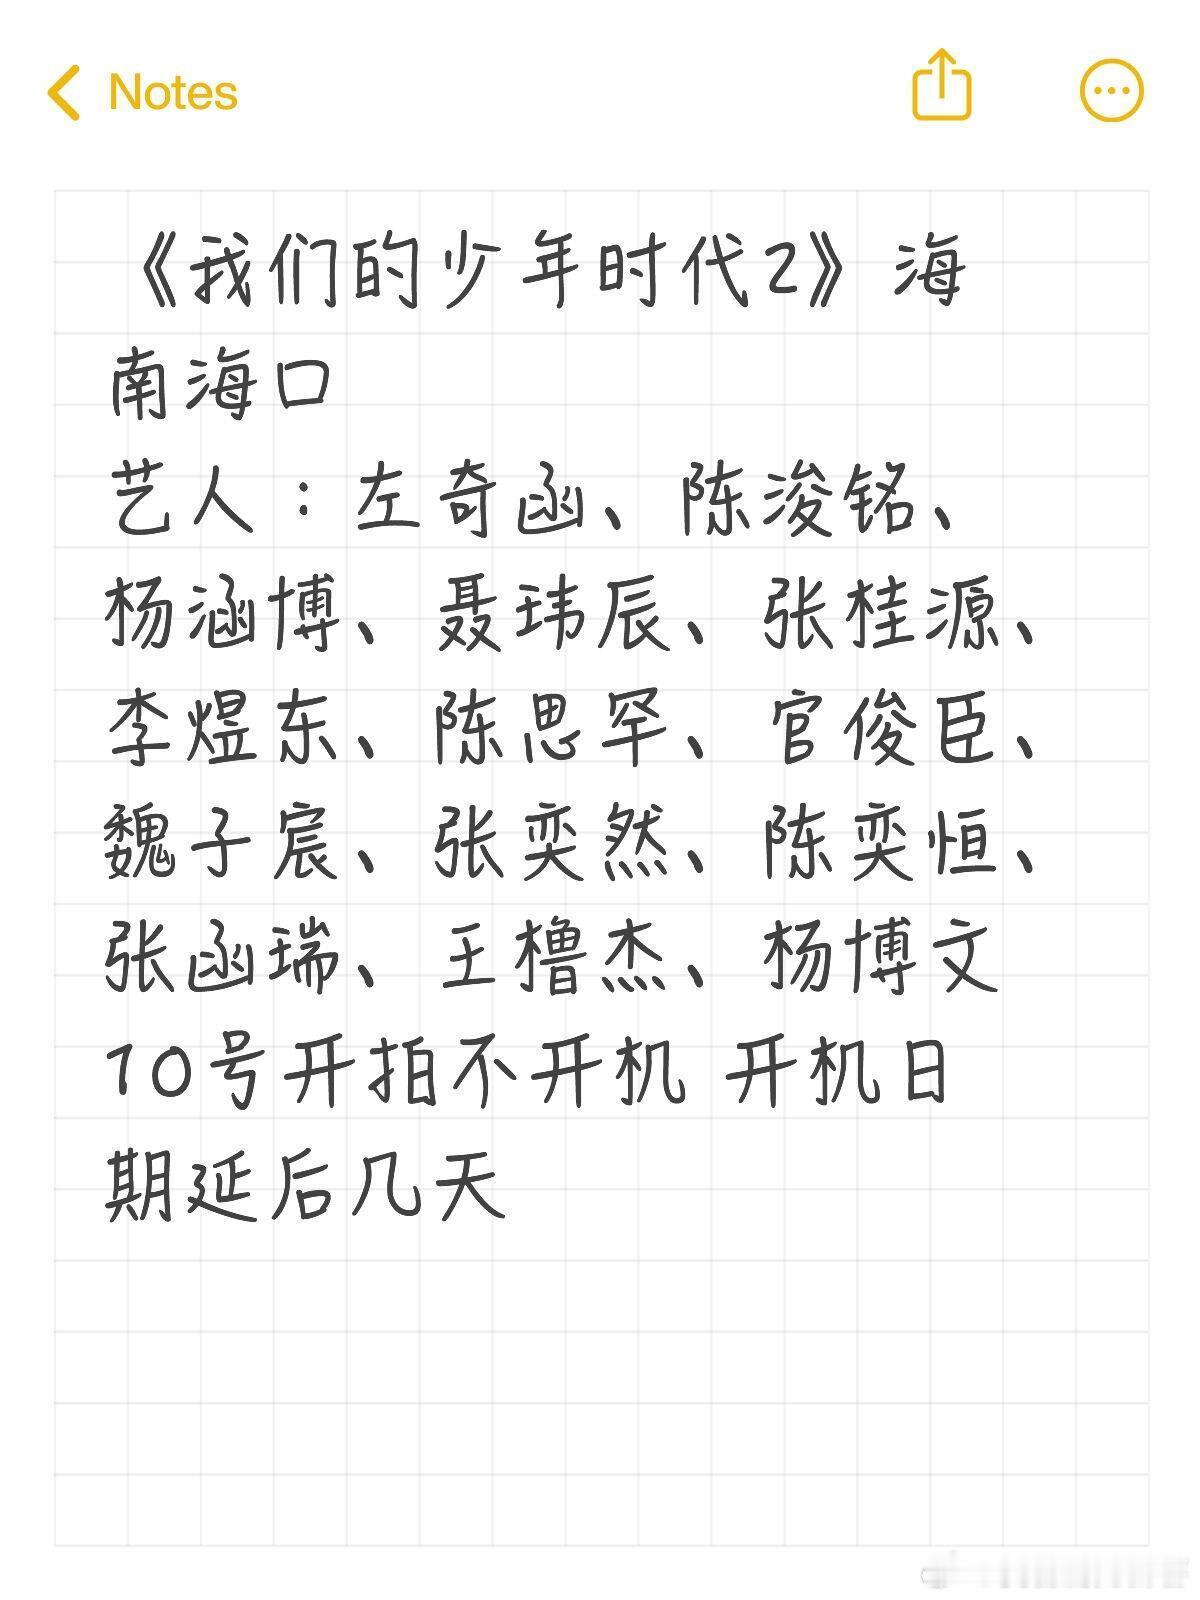 Notes
《我们的少年时代2》海
南海口
艺人：左奇函、陈浚铭、
杨涵博、聂玮辰、张桂源、
李煜东、陈思罕、官俊臣、
魏子宸、张奕然、陈奕恒、
张函瑞、王橹杰、杨博文
10号开拍不开机 开机日
期延后几天